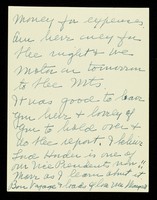 Money for expenses
Am here only for
the night & we
Motor in tomorrow
to the Mts.
It was good to have
you here & lovely of
you to hold over &
do the report. I believe
Ind is one of
our Vice Presidents now!!
More as I learn about it
& loads of love